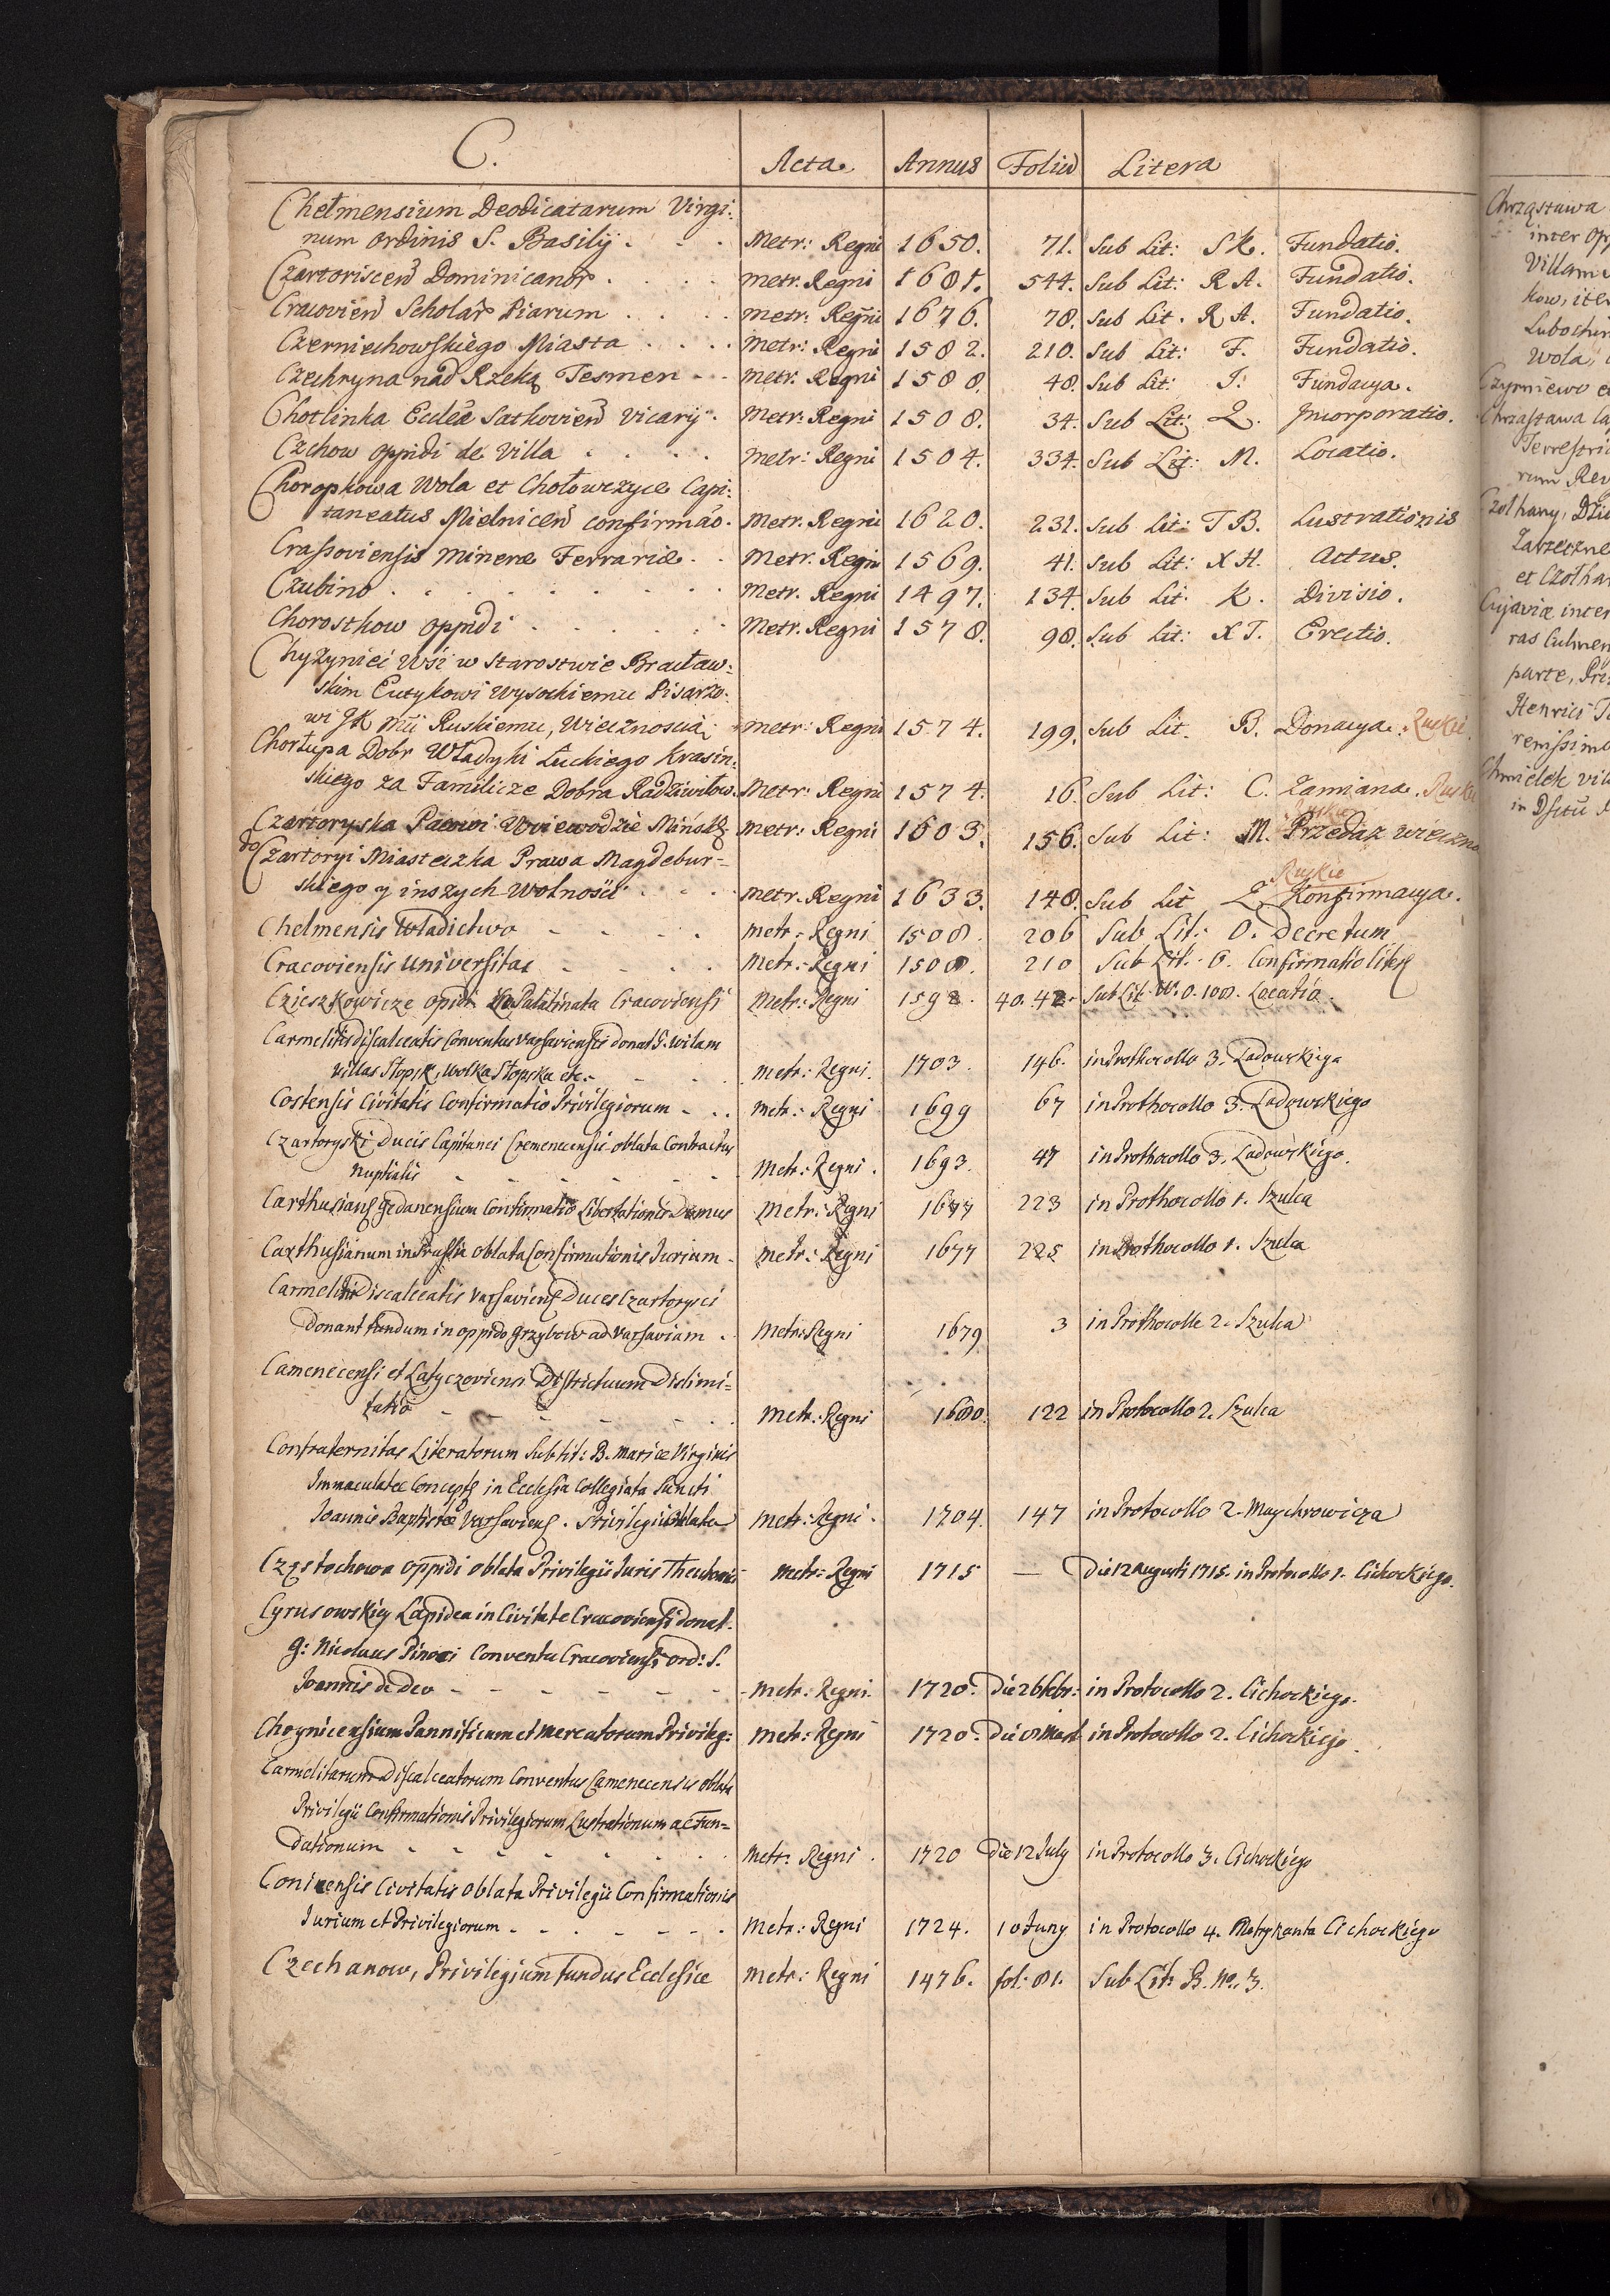 C. Acta Annus Foliu Litera
Chełmensium Deodicatarum Virgi:
num Ordinis S. Basilÿ . . . Metr: Regni 1650. 71. Sub Lit: S K. Fundatio.
Czartoriscen Dominicanor . . . . Metr. Regni 1681. 544. Sub Lit: R A. Fundatio.
Cracovien Scholar Piarum . . . . Metr: Regni 1676. 78. Sub Lit. R A. Fundatio.
Czerniechowskiego Miasta . . . . Metr: Regni 1582. 210. Sub Lit: F. Fundatio.
Czechryna nad Rzeką Tesmen . . Metr. Regni 1588. 48. Sub Lit: Fundacya.
Chotlinka Eccleæ Satkovien Vicarÿ . Metr: Regni 1508. 34. Sub Lit: Incorporatio.
Czchow oppidi de Villa . . . . Metr: Regni 1504. 334. Sub Lit: M. Locatio.
Choropkowa Wola et Chołowczyce Capi:
taneatus Mielnicen confirmao. Metr. Regni 1620. 231. Sub Lit: T B. Lustrationis
Crassoviensis Mineræ Ferrariæ . . Metr. Regni 1569. 41. Sub Lit: X H. Actus.
Czubino . . . . . . . Metr. Regni 1497. 134. Sub Lit: K. Divisio.
Chorostkow oppidi . . . . . . Metr. Regni 1578. 98. Sub Lit: X T. Erectio.
Chyżyniei Wsi w Starostwie Bracław:
skim Eutykowi Wysockiemu Pisarzo:
wi JK Mci Ruskiemu, Wiecznoscią Metr: Regni 1574. 199. Sub Lit. B. Donacya. Ruskie.
Chorłupa Dobr Władyki Łuckiego Krasin:
skiego za Familicze Dobra Radziwiłow. Metr: Regni 1574. 16. Sub Lit: C. Zamiana. Ruskie
Ruskie
Czartoryska Pacowi Woiewodzie Mińsk Metr: Regni 1603. 156. Sub Lit: M. Przedaz wieczna
do Czartoryi Miasteczka Prawa Magdebur=
Ruskie
skiego y inszych Wolności . . . . Metr. Regni 1633. 148. Sub Lit Konfirmacya.
Chelmensis Władictwo - - - . Metr: Regni 1508. 206 Sub Lit: O. Decretum
Cracoviensis Universitas - . . . Metr: Regni 1508. 210 Sub Lit: Confirmatio
Czieszkowicze opidi in Palatinatu Cracoviensi Metr: Regni 1592. 40.42. Sub Lit: W. O. 108. Locatio.
Carmelitis discalceatis Conventus Varsaviensis donat G. Wilam
Villas Stopsk, Wolka Stopska etc. - - - . Metr: Regni. 1703. 146. in Prothocollo 3. Ladowskiego
Costensis Civitatis Confirmatio Privilegiorum - . . Metr: Regni 1699 67 in Prothocollo 3. Ladowskiego
Czartoryski Ducis Capitanei Cremenecensis oblata Contractus
Nuptialis - - - - - - - Metr: Regni . 1693. 47 in Prothocollo 3. Ladowskiego.
Carthusianȩ Gedanensium Confirmatio Libertationis Domus Metr: Regni 1677 223 in Prothocollo 1. Szulca
Carthusianum in Prussia oblata Confirmationis Jurium - Metr: Regni 1677 225 in Prothocollo 1. Szulca
Carmelitis Discalceatis Varsaviensȩ Duces Czartoryscii
Donant fundum in oppido Grzybow ad Varsaviam . Metr: Regni 1679 3 in Prothocollo 2. Szulca
Camenecensi et Latyczoviensi Districtuum Dislimi=
tatio - - - - . . Metr: Regni 1680. 122 in Protocollo 2. Szulca
Confraternitas Literatorum Sub tit: B. Mariæ Virginis
Immaculatæ Conceptȩ in Ecclesia Collegiata Sancti
Joannis Baptistæ Varsaviensȩ . Privilegii Oblata Metr: Regni . 1704. 147 in Protocollo 2. Maychrowicza
Częstochowa oppidi oblata Privilegii Juris Theutonici Metr: Regni 1715 — Die 12 Augusti 1715. in Protocollo 1. Cichockiego.
Cyrusowskiey Lapidea in Civitate Cracoviensi donat.
G: Nicolaus Pinoci Conventu Cracoviensi ord: S.
Joannis de Deo - - - - - - Metr: Regni. 1720. Die 26 Febr: in Protocollo 2. Cichockiego.
Choynicensium Pannificum et Mercatorum Privileg: Metr: Regni 1720. Die 8 Mart in Protocollo 2. Cichockiego.
Carmelitarum Discalceatorum Conventus Camenecensis oblata
Privilegii Confirmationis Privilegiorum Lustrationum ac Fun=
dationum - - - - - . . Metr: Regni . 1720 Die 12 July in Protocollo 3. Cichockiego
Conicensis Civitatis oblata Privilegii Confirmationis
Jurium et Privilegiorum - - . . - - . Metr: Regni 1724. 10 Juny in Protocollo 4. Metrykanta Cichockiego
Czechanow, Privilegium fundus Ecclesiæ Metr: Regni 1476. fol: 81. Sub Lit: B. No. 3.
Chrząstawa
inter
Lubochin
Wola,
Henrici
Chmielek